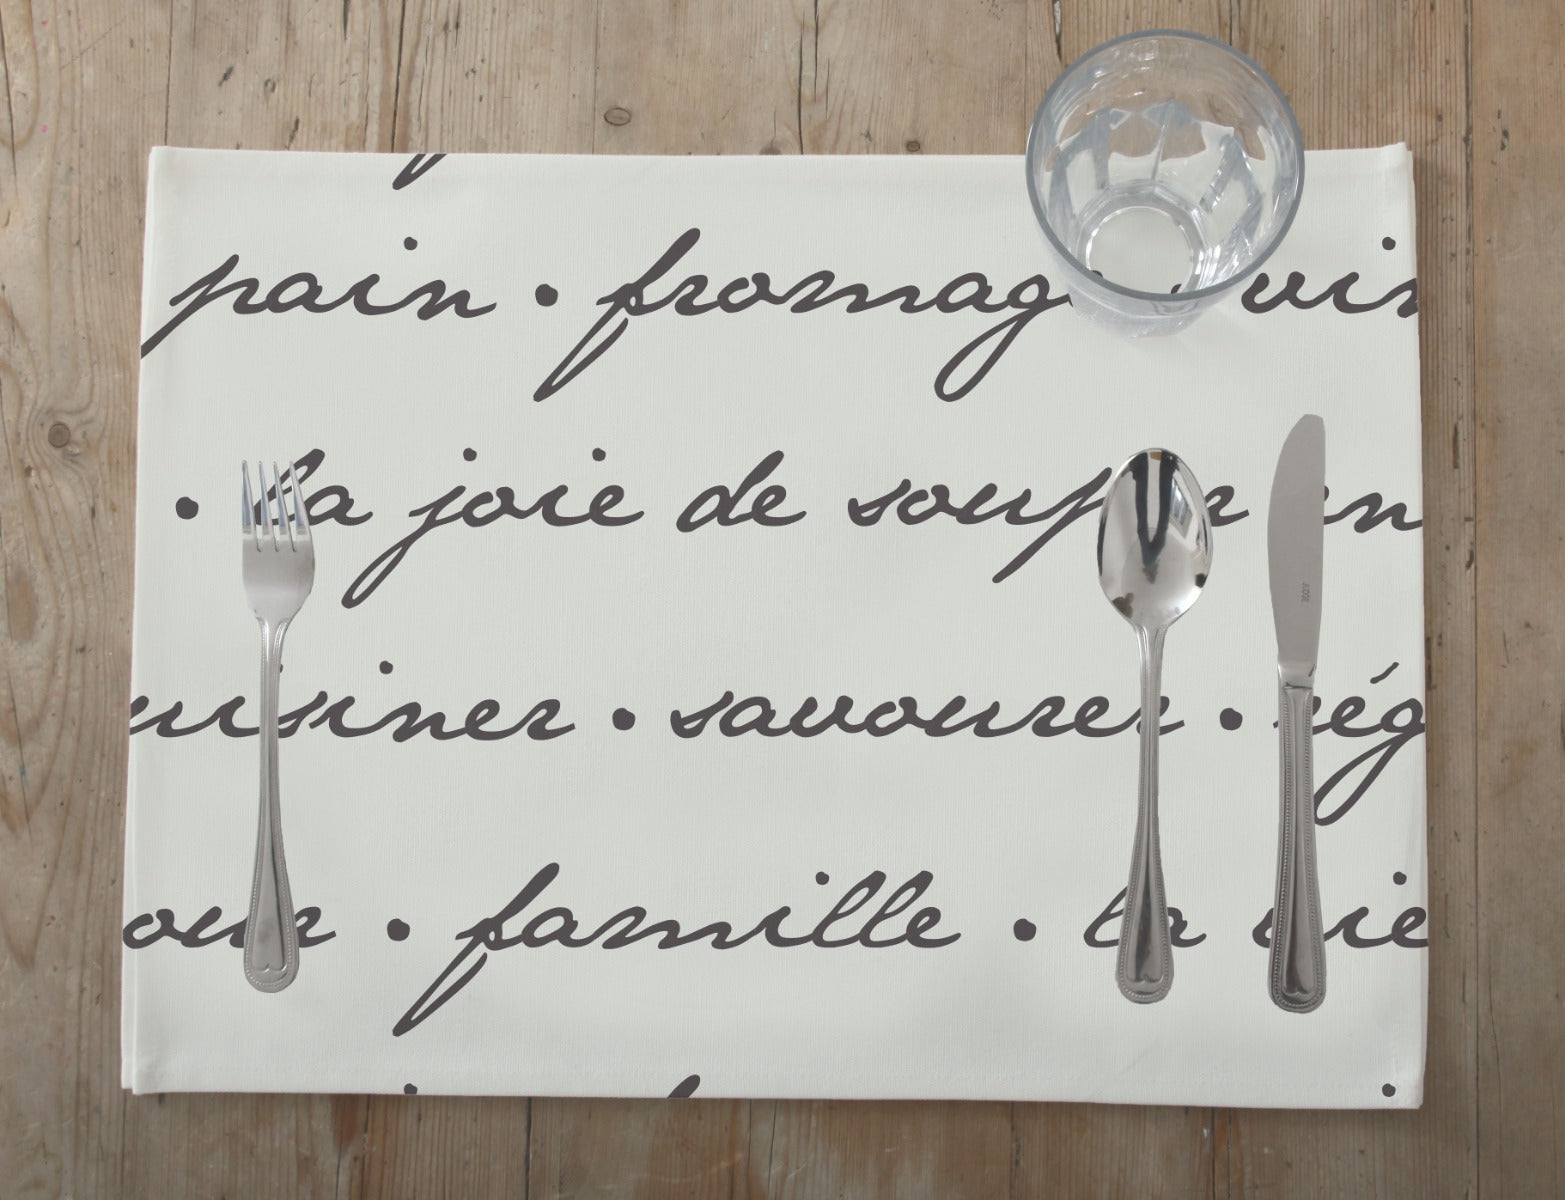 pain • fromage • vin
• la joie de souper en
cuisiner • savourer • rég
our • famille • la vie